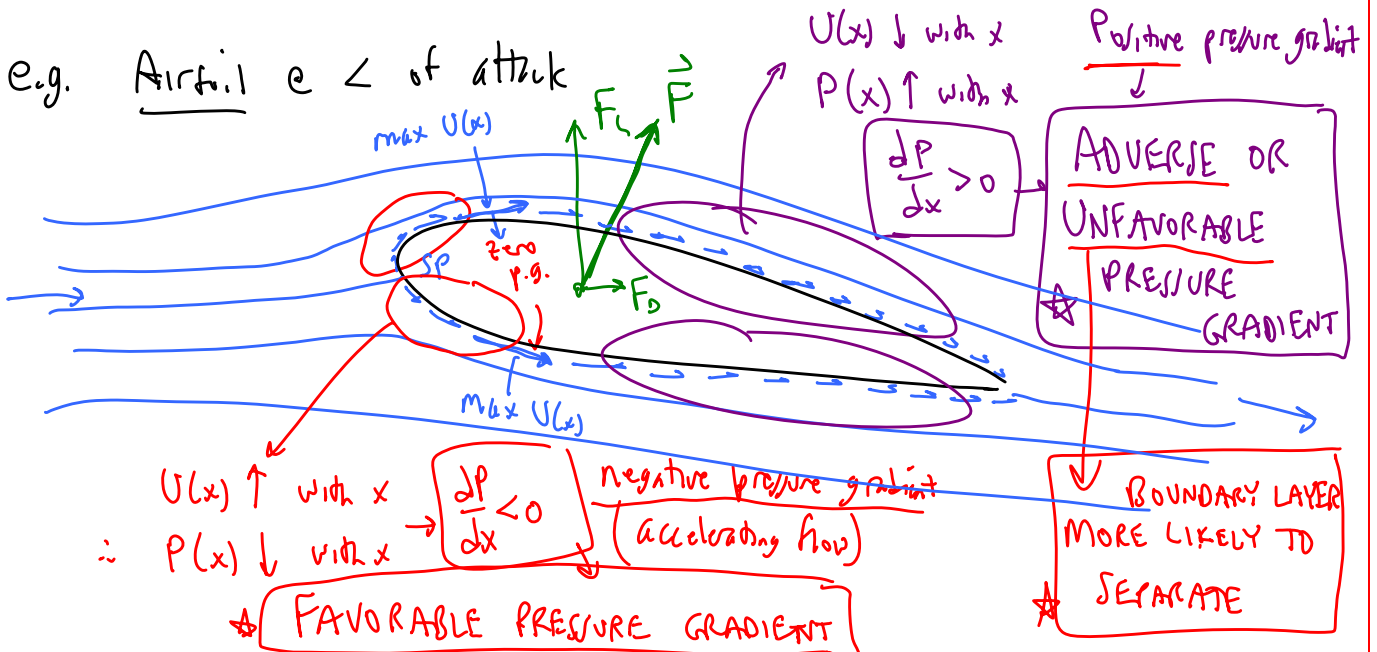 e.g. Airfoil @ ∠ of attack
max U(x)
F_L
F⃗
U(x) ↓ with x
P(x) ↑ with x
dP/dx > 0
Positive pressure gradient
ADVERSE OR
UNFAVORABLE
PRESSURE
GRADIENT
SP
zero
p.g.
F_D
max U(x)
U(x) ↑ with x
∴ P(x) ↓ with x
dP/dx < 0
negative pressure gradient
(accelerating flow)
FAVORABLE PRESSURE GRADIENT
BOUNDARY LAYER
MORE LIKELY TO
SEPARATE